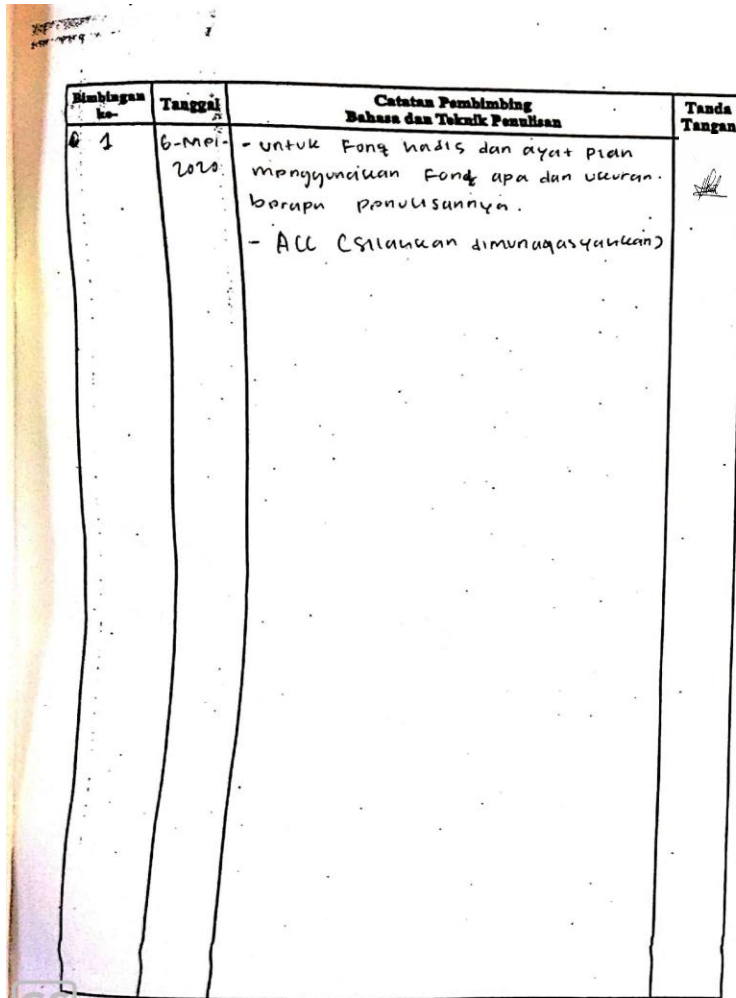 Bimbingan ke-
Tanggal
Catatan Pembimbing
Bahasa dan Teknik Penulisan
Tanda Tangan
1
6-Mei-2020
- untuk Fong hadis dan ayat
menggunakan Fond apa dan ukuran.
berapa penulisannya.
- ACC (silahkan dimunaqasyahkan)